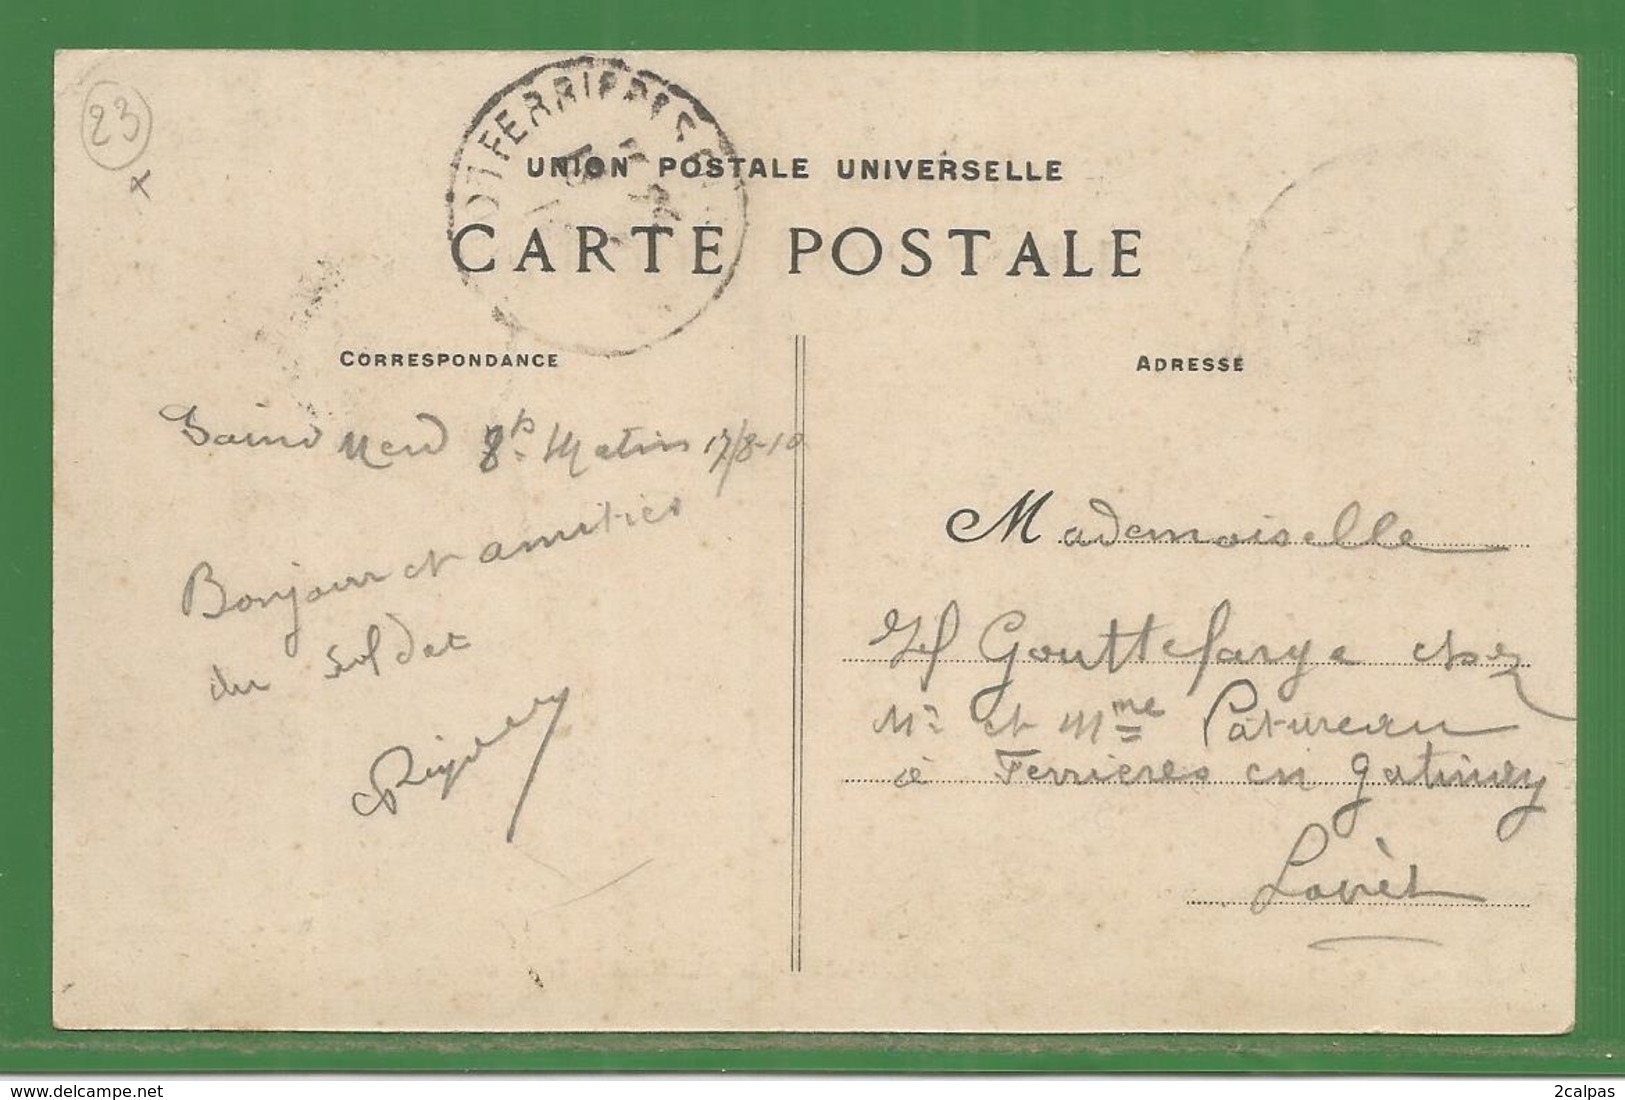 23
x
FERRIERES
UNION POSTALE UNIVERSELLE
CARTE POSTALE
CORRESPONDANCE
ADRESSE
Matin 17/8-10
Bonjour et amitiés
du soldat
Mademoiselle
Gouttefarge chez
Mr et Mme Patureau
à Ferrieres en gatinay
Loirèt
www.delcampe.net
2calpas